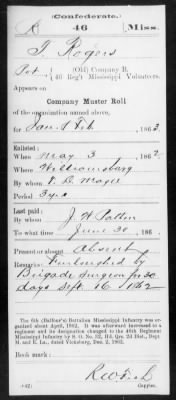 (Confederate.)
R 46 Miss.
J Rogers
Pvt., (Old) Company B,
46 Reg't Mississippi Volunteers.
Appears on
Company Muster Roll
of the organization named above,
for Jan & Feb, 1863.
Enlisted:
When May 3, 1862.
Where Williamsburg
By whom V. B. Magee
Period 3 yrs
Last paid:
By whom J. W. Patton
To what time June 30, 186
Present or absent Absent
Remarks: Furloughed by
Brigade Surgeon for 30
days Sept. 16 1862
The 6th (Balfour's) Battalion Mississippi Infantry was
organized about April, 1862. It was afterward increased to a
regiment and its designation changed to the 46th Regiment
Mississippi Infantry by S. O. No. 52, Hd. Qrs. 2d Dist., Dept.
M. and E. La., dated Vicksburg, Dec. 2, 1862.
Book mark:
(642)
Copyist.